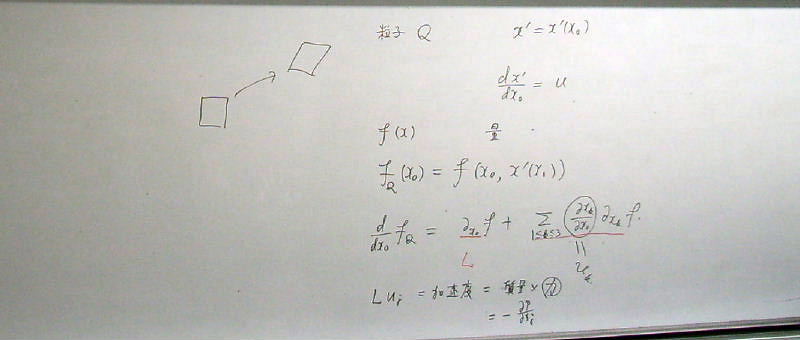 粒子 Q x' = x'(x₀)
dx'/dx₀ = u
f(x) 量
f_Q(x₀) = f(x₀, x'(x₀))
d/dx₀ f_Q = ∂_{x₀} f + Σ_{1≤k≤3} (∂x_k/∂x₀) ∂_{x_k} f.
L u_k
L u_j = 加速度 = 質量 × 力
= -∂p/∂x_j